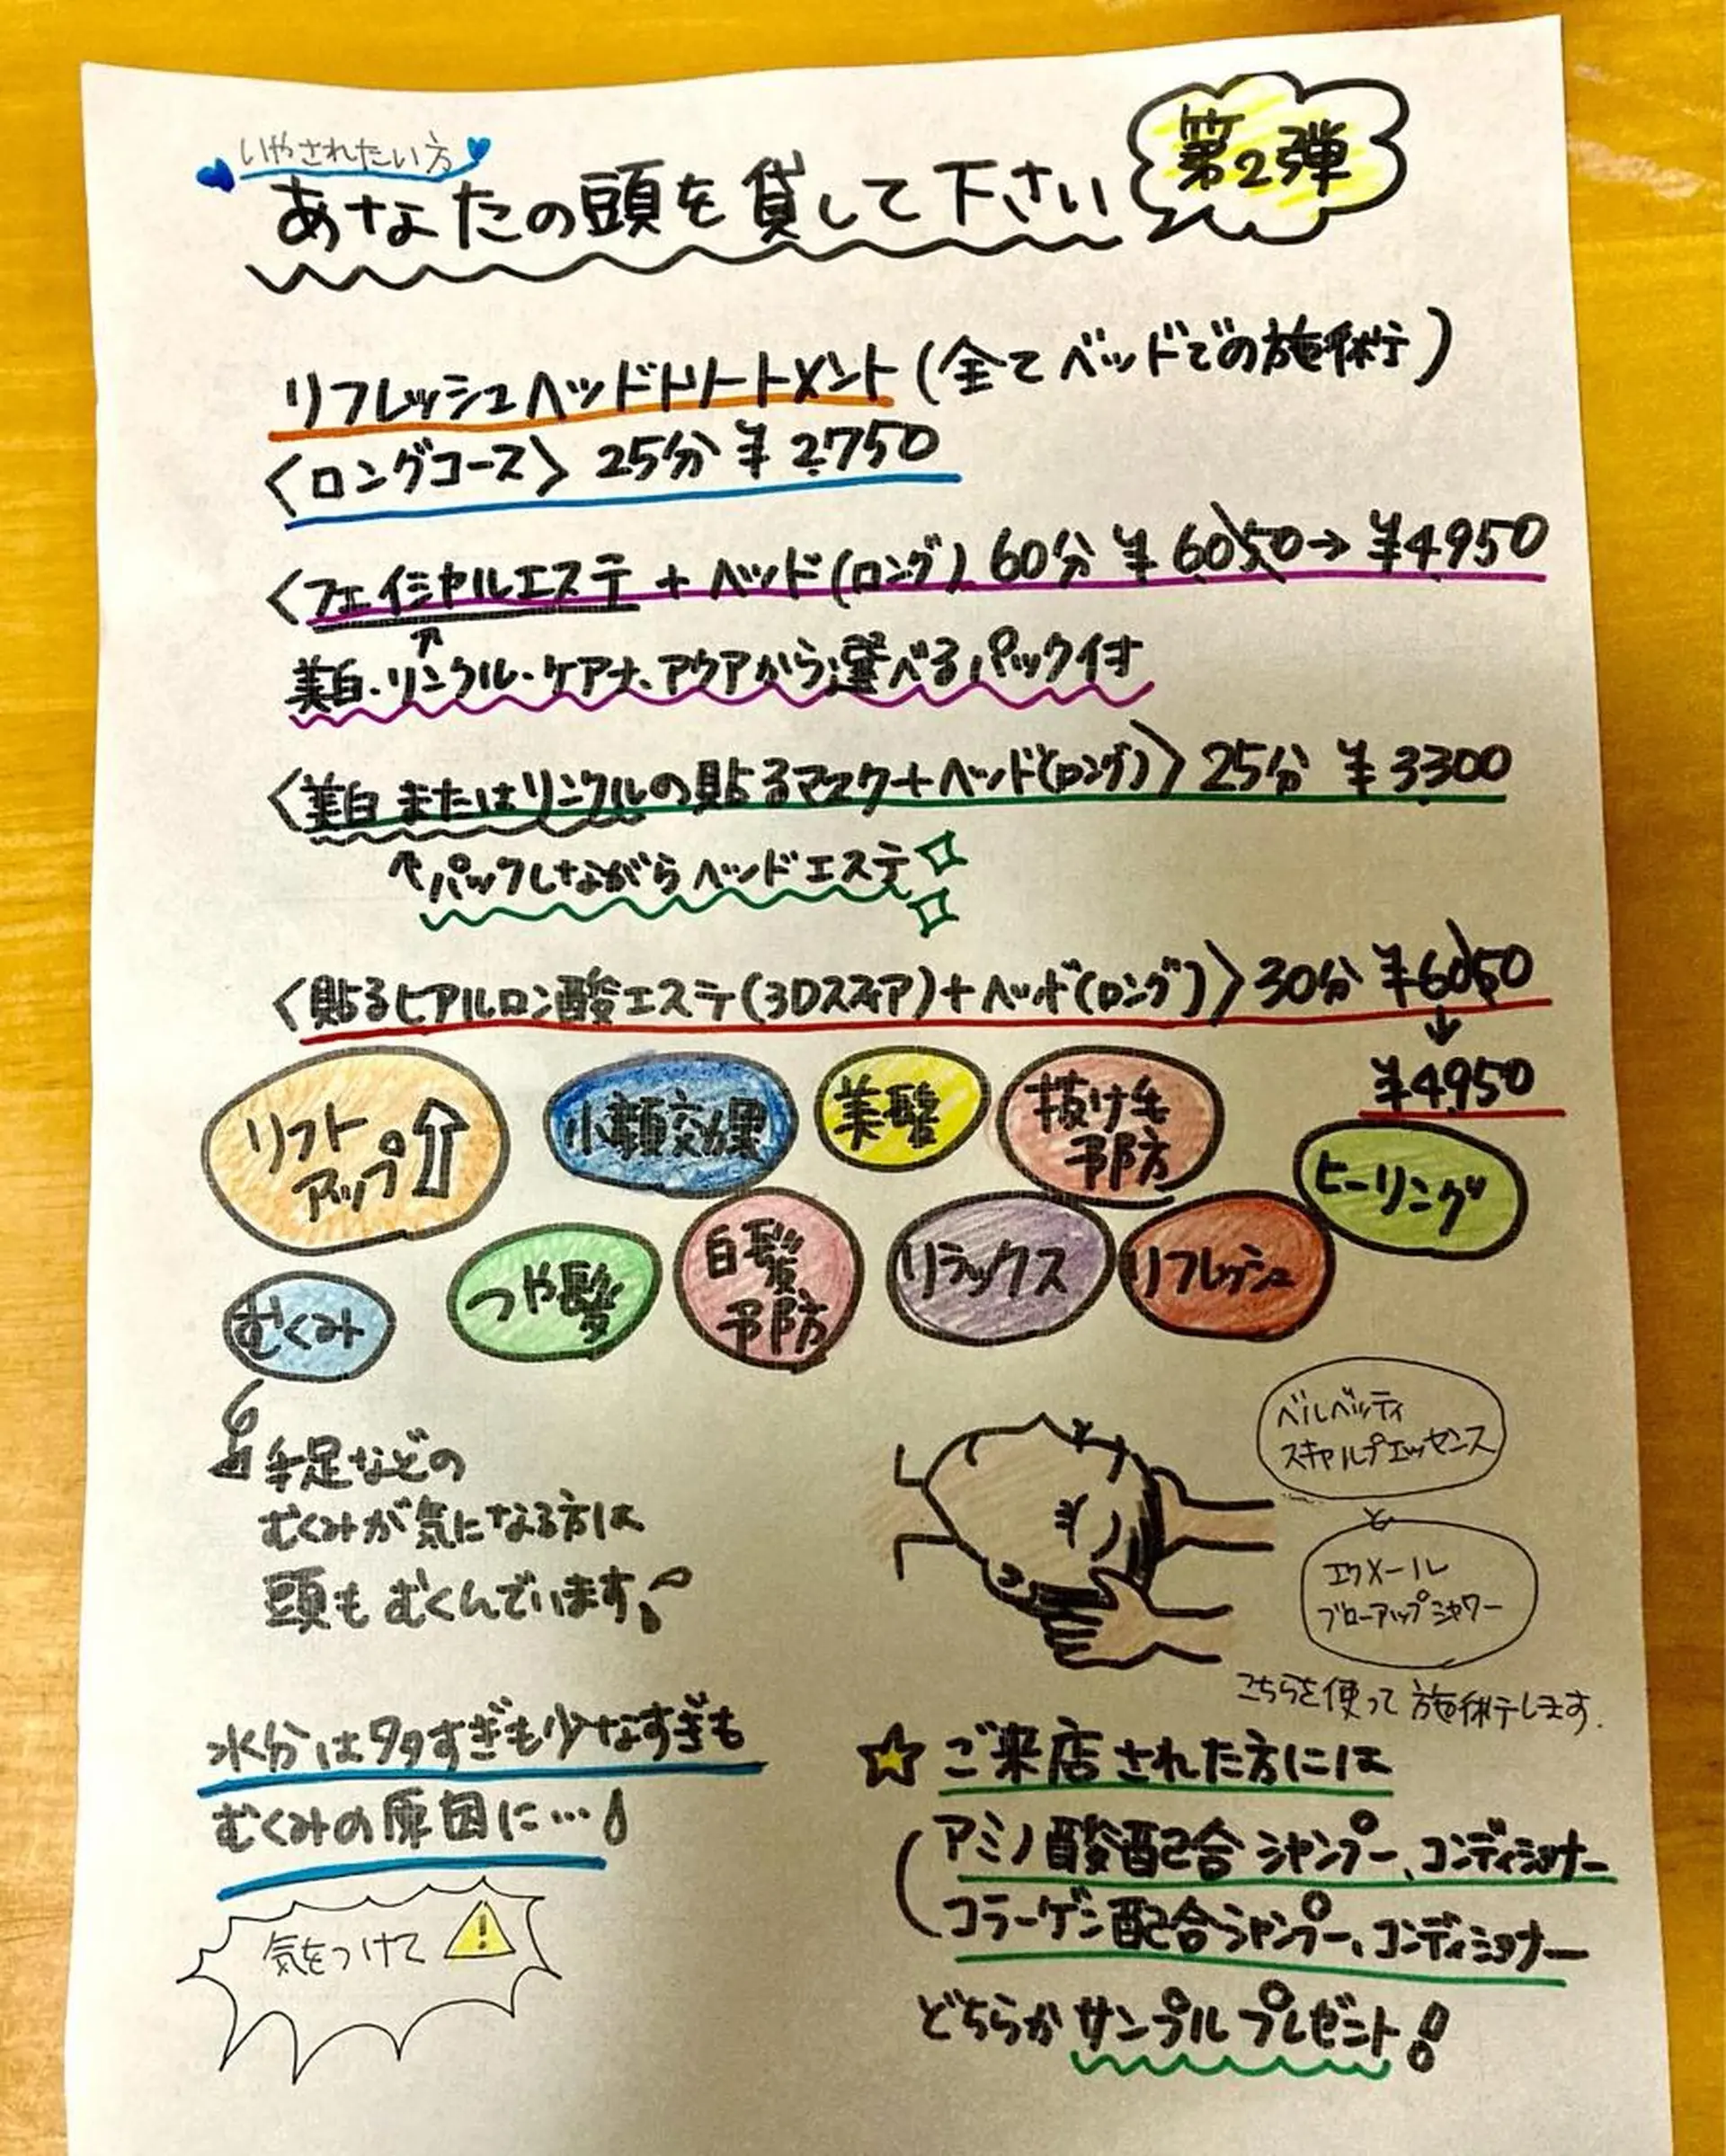 いやされたい方
あなたの頭を貸して下さい
第2弾
リフレッシュヘッドトリートメント(全てベッドでの施術)
〈ロングコース〉25分 ¥2,750
〈フェイシャルエステ+ヘッド(ロング) 60分 ¥6,050→¥4,950
美白・リンクル・ケアナ、アクアから選べるパック付
〈美白またはリンクルの貼るマスク+ヘッド(ロング)〉25分 ¥3,300
パックしながらヘッドエステ
〈貼るヒアルロン酸エステ(3Dスフィア)+ヘッド(ロング)〉30分 ¥6,050
↓
¥4,950
リフト
アップ
小顔効果
美髪
抜け毛
予防
ヒーリング
むくみ
つや髪
白髪
予防
リラックス
リフレッシュ
手足などの
むくみが気になる方は
頭もむくんでいます
ベルベッティ
スキャルプエッセンス
と
エクメール
ブローアップシャワー
こちらを使って施術します。
水分は多すぎも少なすぎも
むくみの原因に…
気をつけて
!
☆ご来店された方には
アミノ酸配合シャンプー、コンディショナー
コラーゲン配合シャンプー、コンディショナー
どちらかサンプルプレゼント!